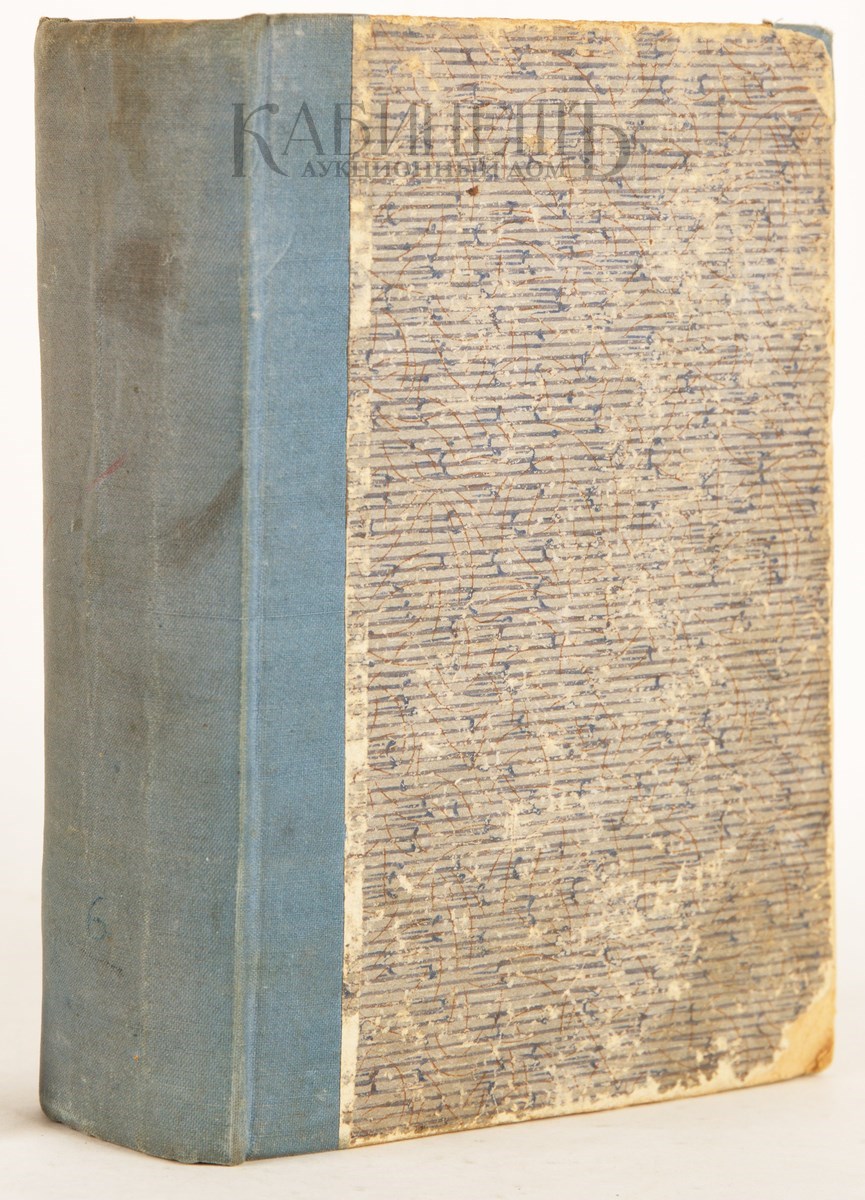 КАБИНЕТЪ
АУКЦИОННЫЙ ДОМ
6